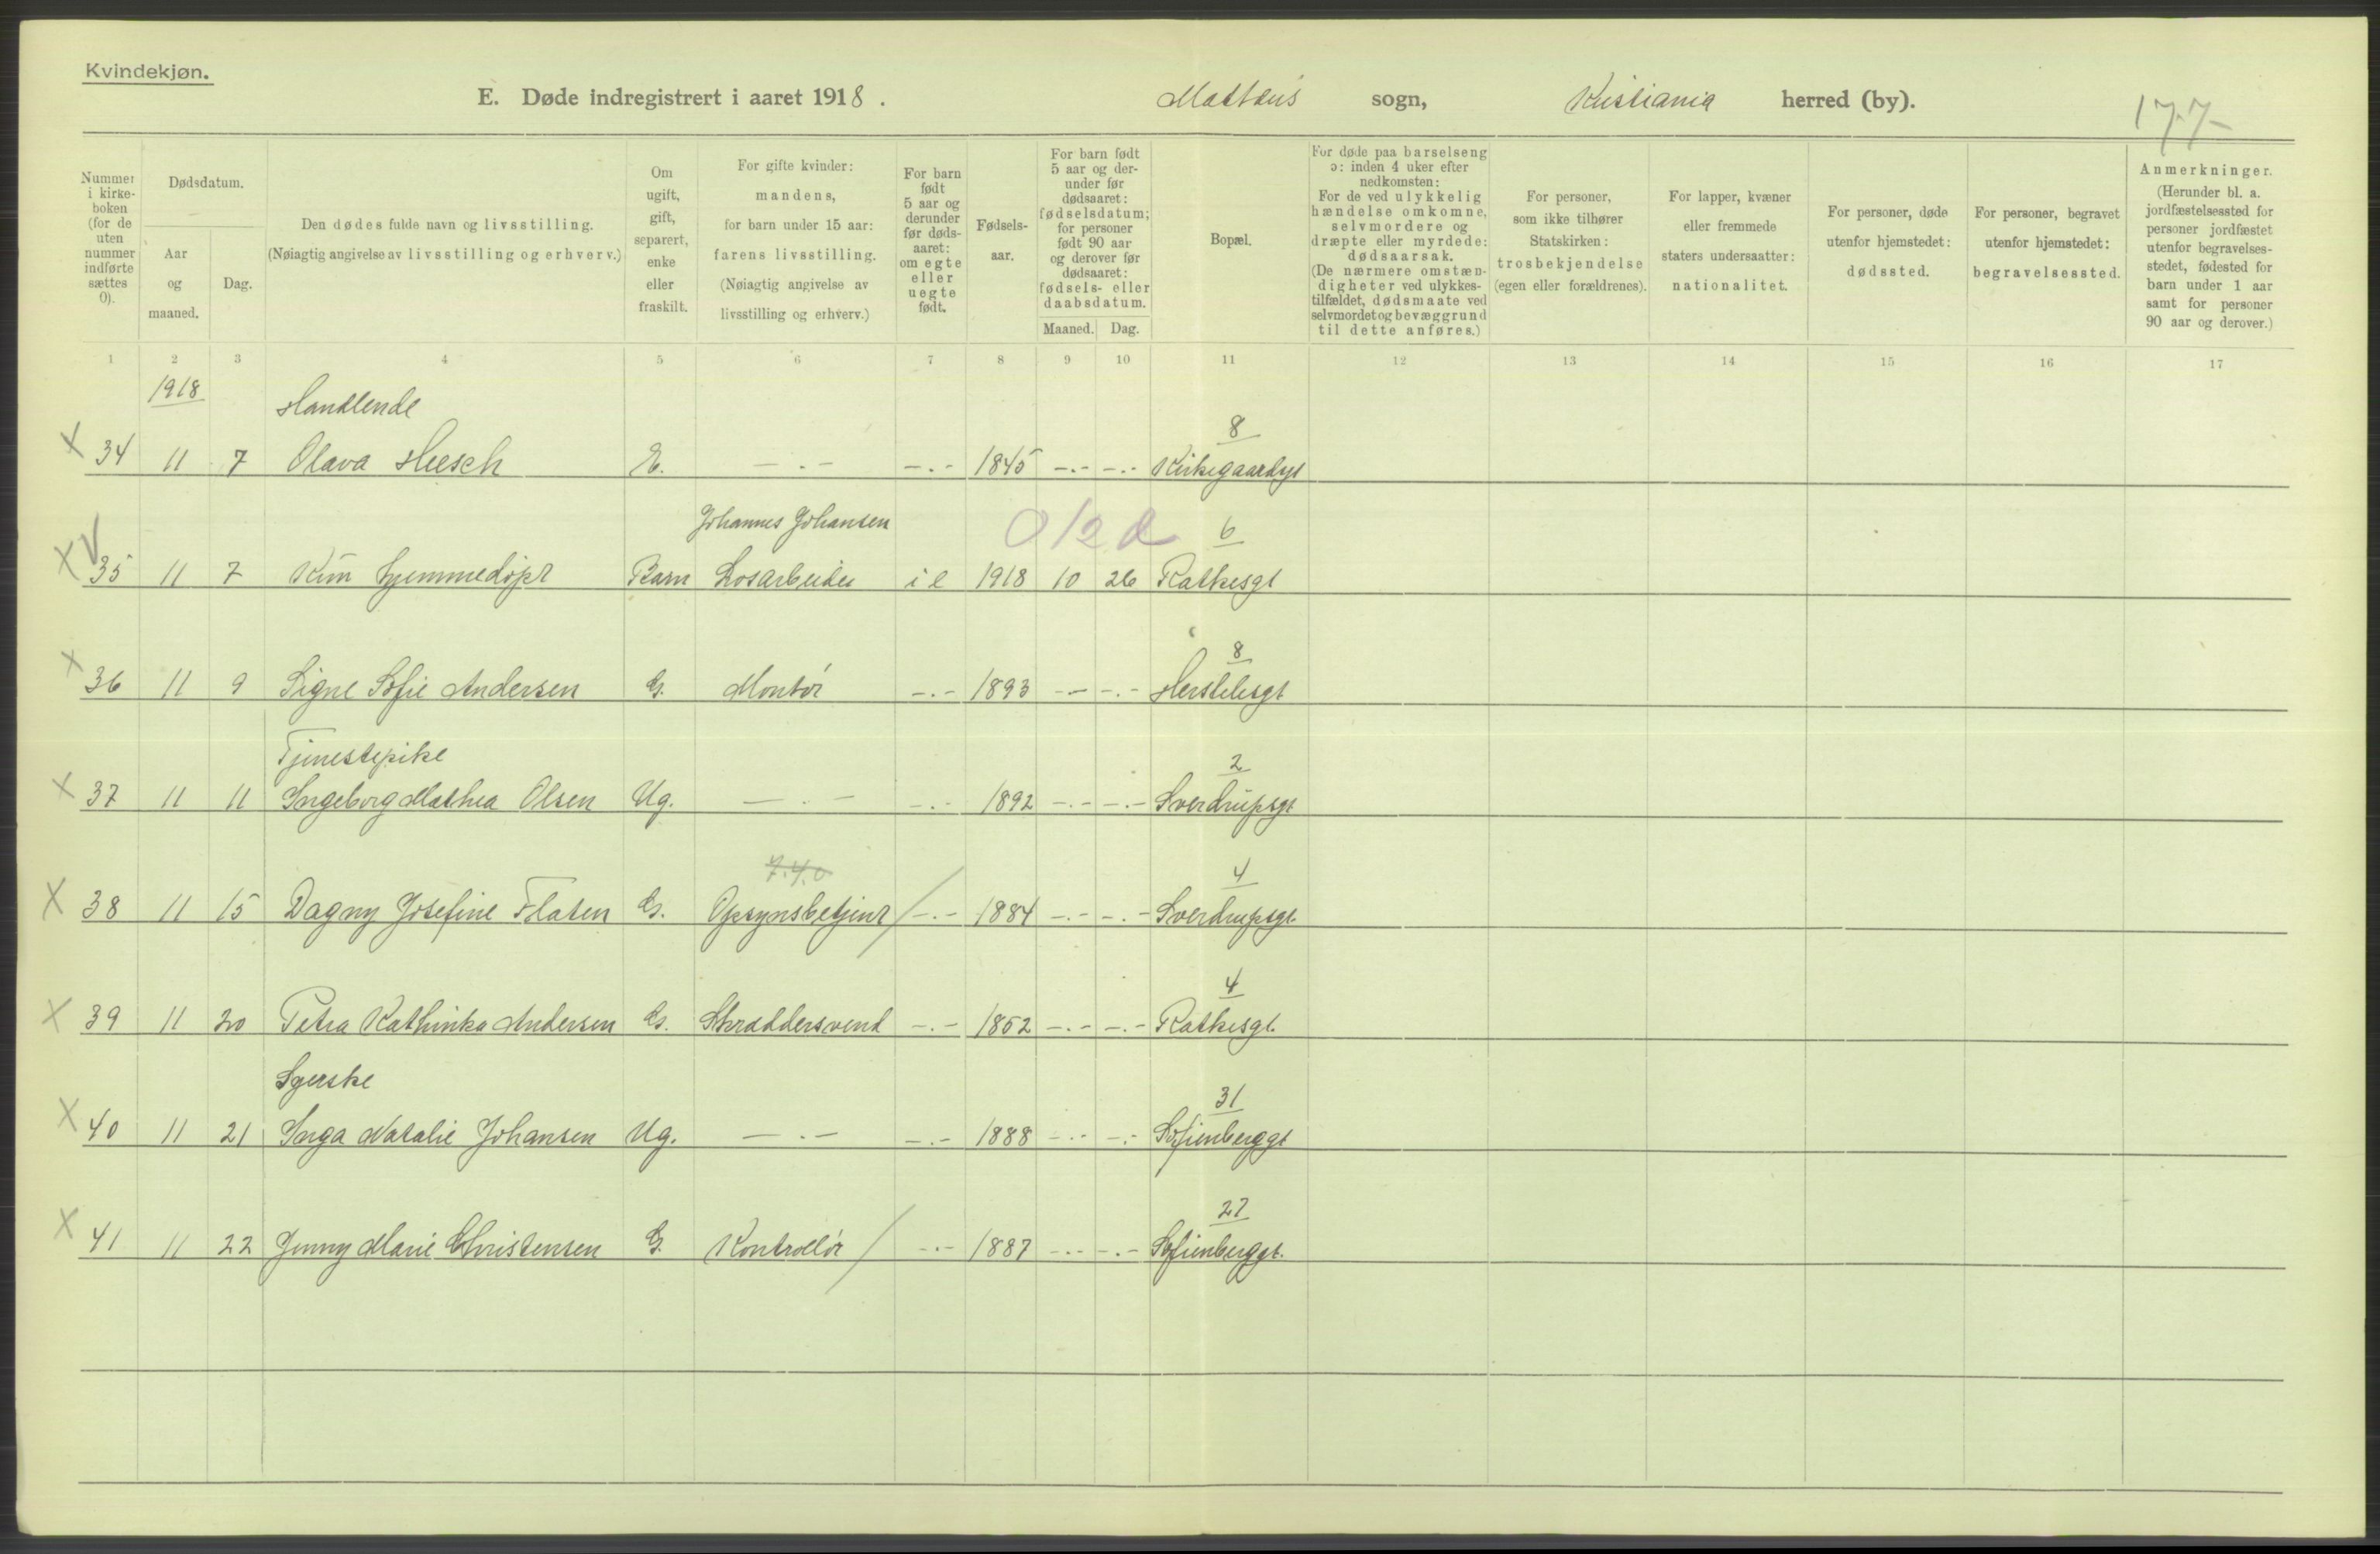 Kvindekjøn.
E. Døde indregistrert i aaret 1918. Mattæus sogn, Kristiania herred (by).
177
Nummer i kirkeboken (for de uten nummer indførte sættes 0).
Dødsdatum.
Aar og maaned.
Dag.
Den dødes fulde navn og livsstilling.
(Nøiagtig angivelse av livsstilling og erhverv.)
Om ugift, gift, separert, enke eller fraskilt.
For gifte kvinder: mandens, for barn under 15 aar: farens livsstilling. (Nøiagtig angivelse av livsstilling og erhverv.)
For barn født 5 aar og derunder før dødsaaret: om egte eller uegte født.
Fødselsaar.
For barn født 5 aar og derunder før dødsaaret: fødselsdatum; for personer født 90 aar og derover før dødsaaret: fødsels- eller daabsdatum.
Maaned. Dag.
Bopæl.
For døde paa barselseng ɔ: inden 4 uker efter nedkomsten: For de ved ulykkelig hændelse omkomne, selvmordere og dræpte eller myrdede: dødsaarsak. (De nærmere omstændigheter ved ulykkestilfældet, dødsmaate ved selvmordet og bevæggrund til dette anføres.)
For personer, som ikke tilhører Statskirken: trosbekjendelse (egen eller forældrenes).
For lapper, kvæner eller fremmede staters undersaatter: nationalitet.
For personer, døde utenfor hjemstedet: dødssted.
For personer, begravet utenfor hjemstedet: begravelsessted.
Anmerkninger. (Herunder bl. a. jordfæstelsessted for personer jordfæstet utenfor begravelsesstedet, fødested for barn under 1 aar samt for personer 90 aar og derover.)
1 2 3 4 5 6 7 8 9 10 11 12 13 14 15 16 17
1918
Handlende
8
X 34 11 7 Olava Hesch E. — . — — . — 1845 — . — — . — Kirkegaardsgt
Johannes Johansen 0 12 d 6
X V 35 11 7 Kun hjemmedøpt Barn Løsarbeider i e 1918 10 26 Rathkesgt
8
X 36 11 9 Signe Sofie Andersen G. Montør — . — 1893 — . — — . — Herslebsgt
Tjenestepike
2
X 37 11 11 Ingeborg Mathea Olsen Ug. — . — — . — 1892 — . — — . — Sverdrupsgt
7.4.0 4
X 38 11 15 Dagny Josefine Flaten G. Opsynsbetjent / — . — 1884 — . — — . — Sverdrupsgt.
4
X 39 11 20 Petra Kathinka Andersen G. Skræddersvend — . — 1852 — . — — . — Rathkesgt.
Syerske
31
X 40 11 21 Inga Natalie Johansen Ug. — . — — . — 1888 — . — — . — Sofienberggt
27
X 41 11 22 Jenny Marie Christensen G. Kontrollør / — . — 1887 — . — — . — Sofienberggt.